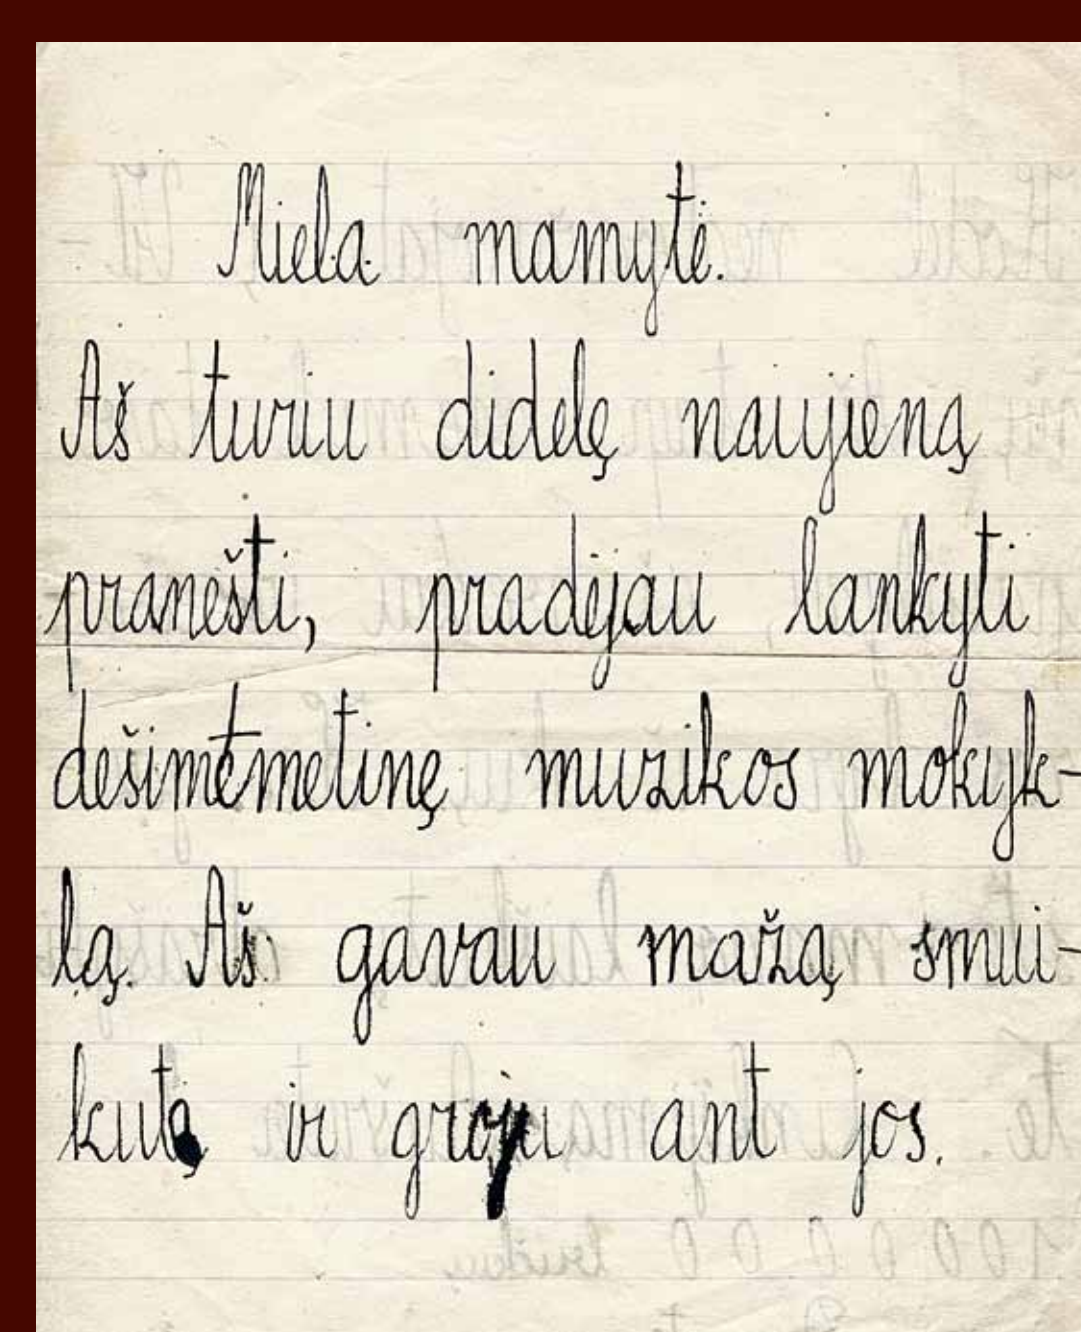 Miela mamytė.
Aš turiu didelę naujieną
pranešti, pradėjau lankyti
dešimtmetinę muzikos mokyk-
lą. Aš gavau mažą smui-
kutą ir groju ant jos.